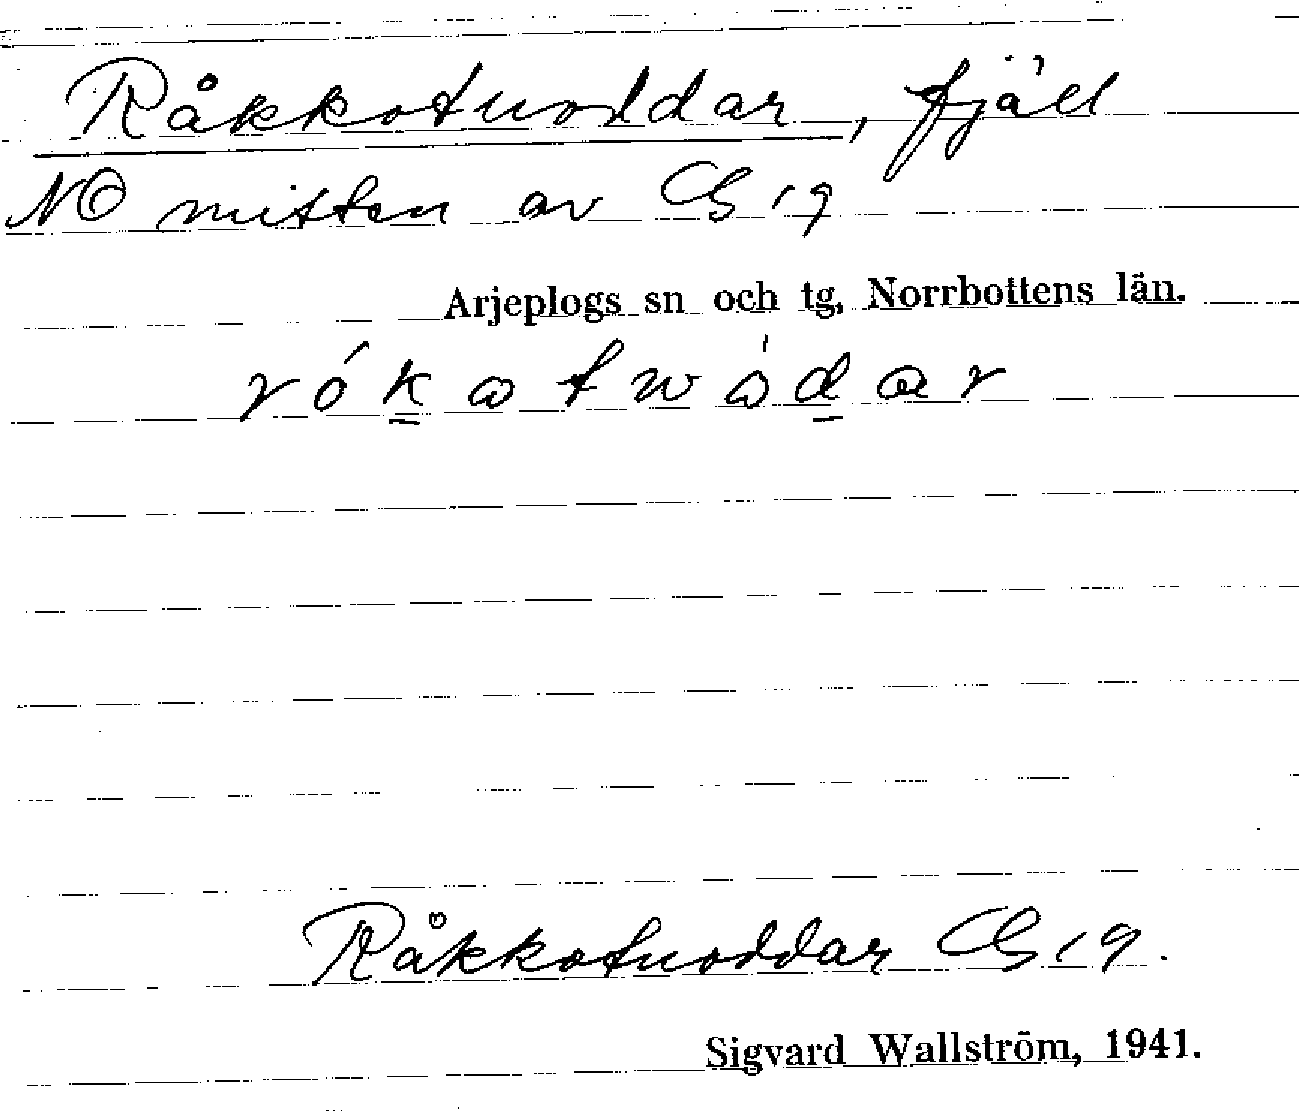 Råkkotuoddar, fjäll
NO mitten av CG 19
Arjeplogs sn och tg, Norrbottens län.
rókatwådar
Råkkotuoddar CG 19.
Sigvard Wallström, 1941.